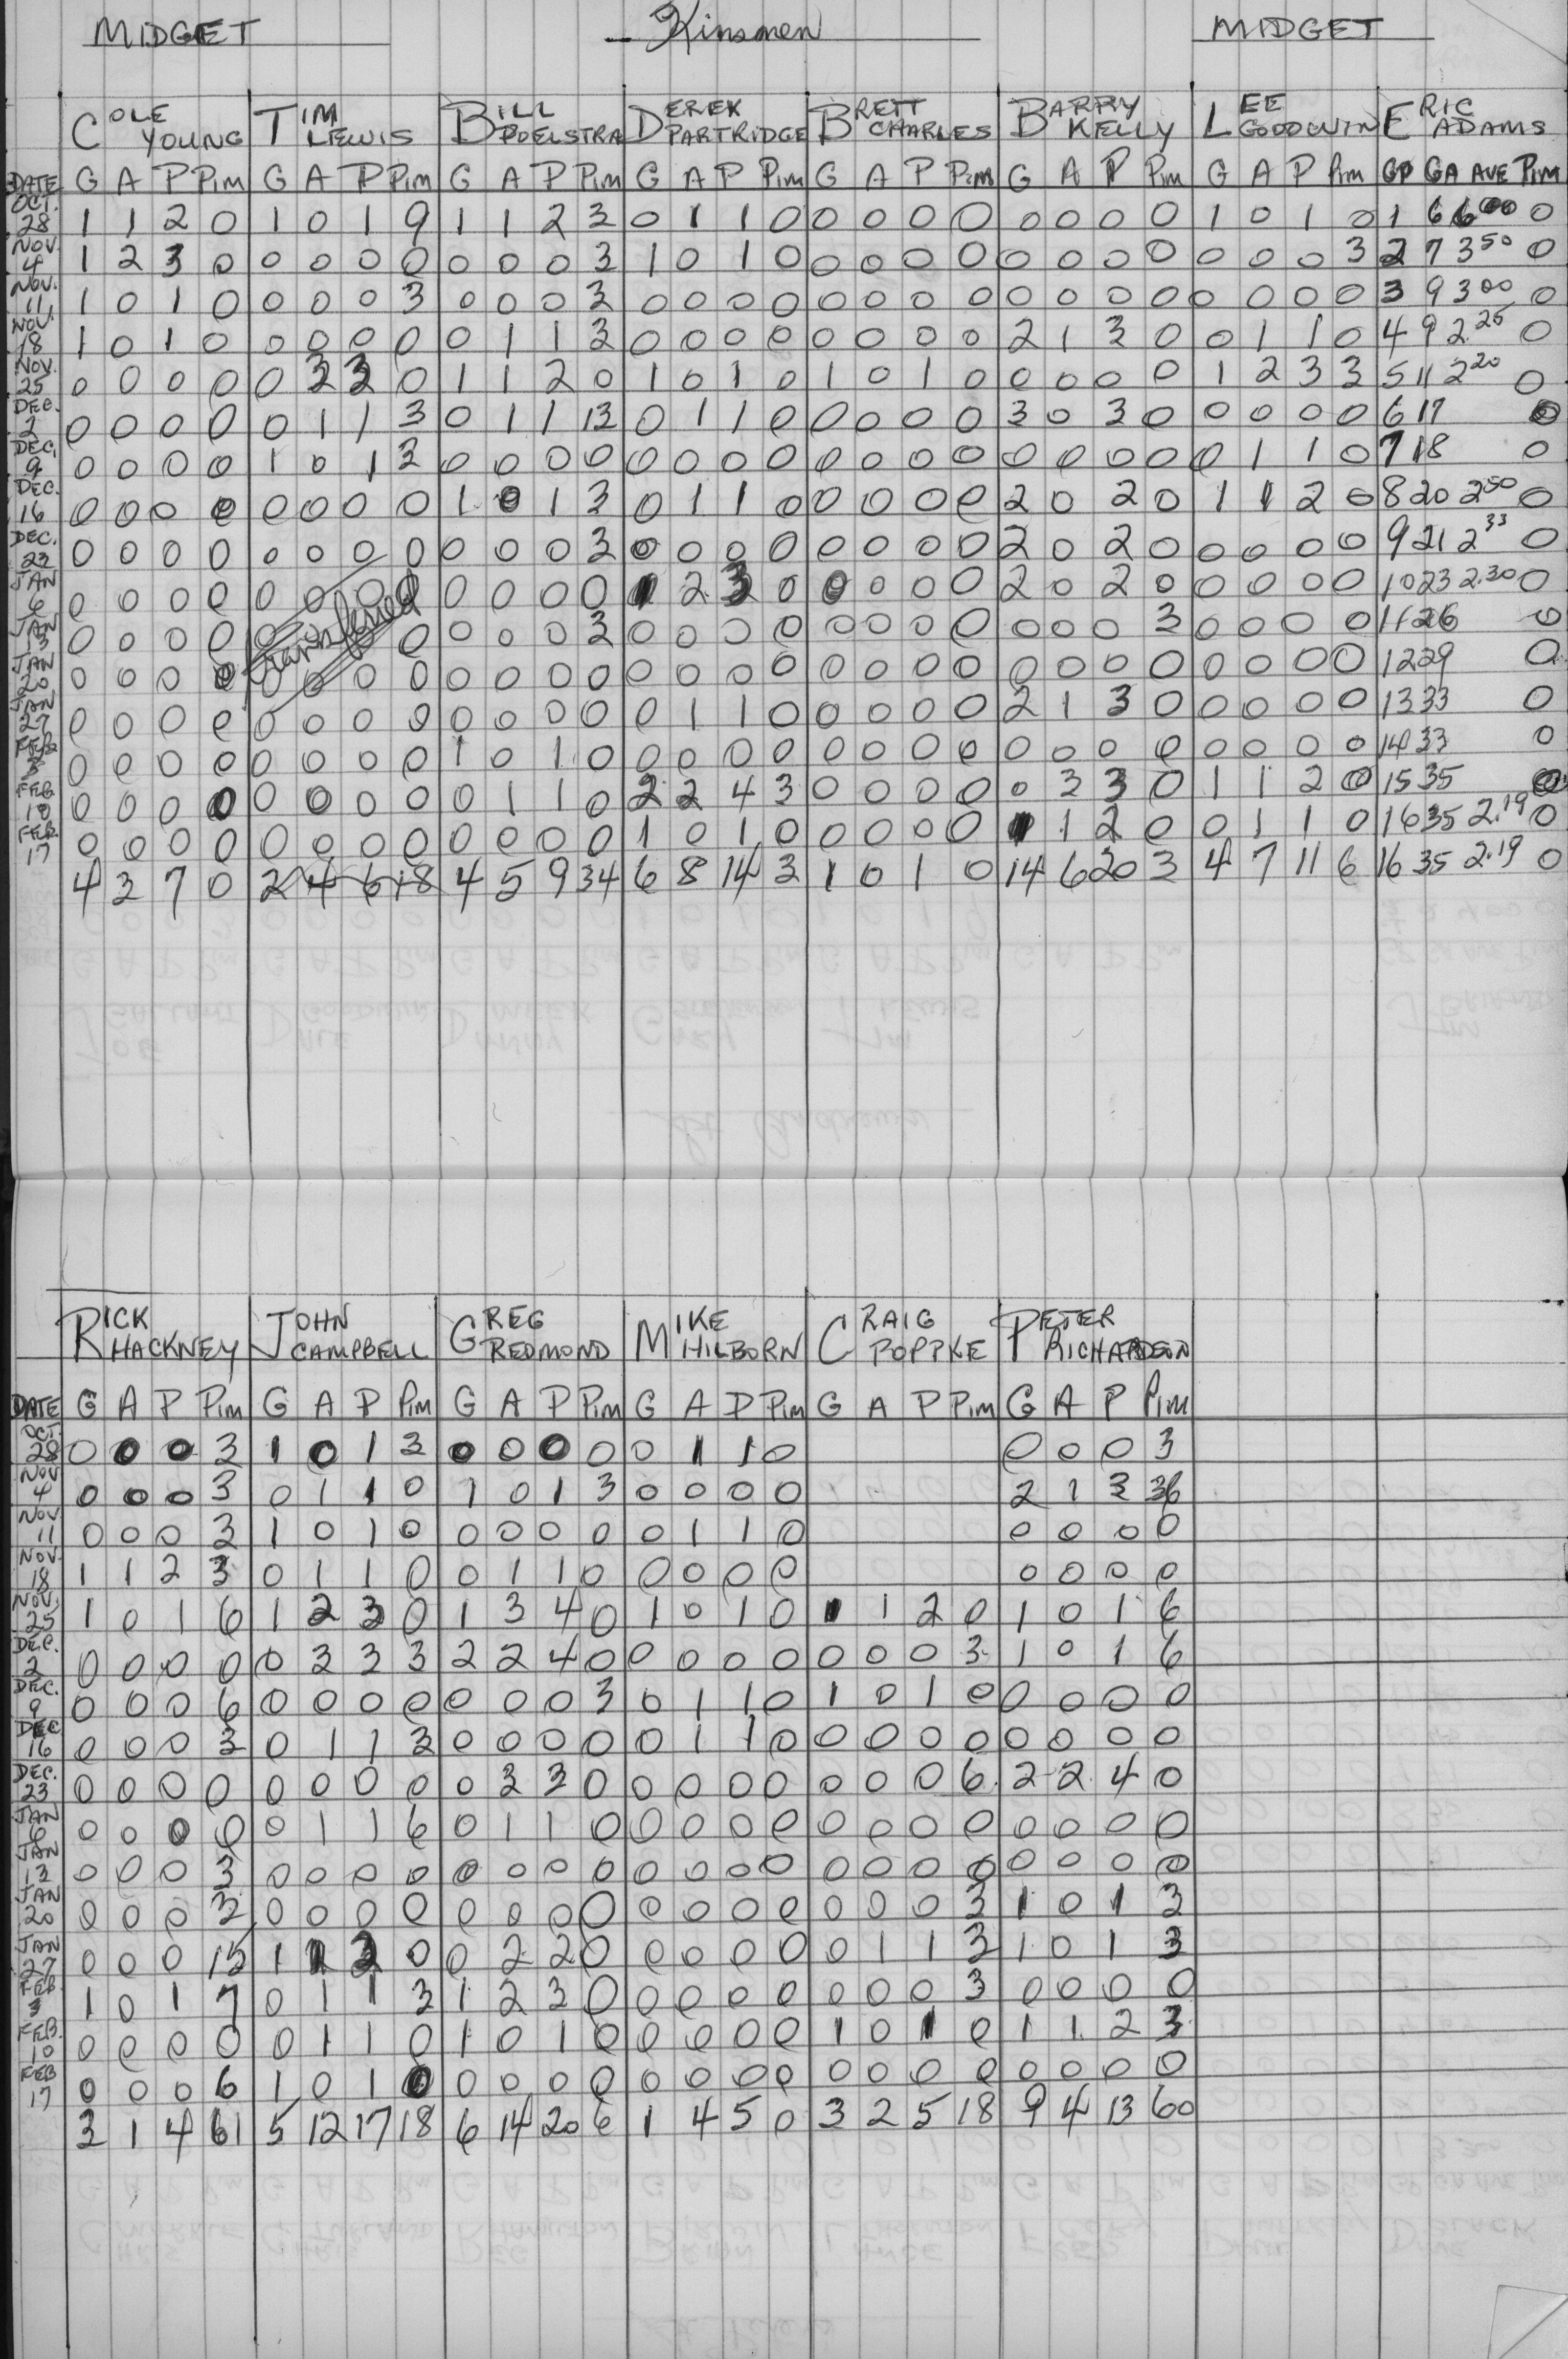 MIDGET Kinsmen MIDGET
COLE YOUNG TIM LEWIS BILL POELSTRA DEREK PARTRIDGE BRETT CHARLES BARRY KELLY LEE GOODWIN ERIC ADAMS
DATE G A P Pim G A P Pim G A P Pim G A P Pim G A P Pim G A P Pim G A P Pim GP GA AVE Pim
OCT. 28 1 1 2 0 1 0 1 9 1 1 2 3 0 1 1 0 0 0 0 0 0 0 0 0 1 0 1 0 1 6 6 00 0
NOV. 4 1 2 3 0 0 0 0 0 0 0 0 3 1 0 1 0 0 0 0 0 0 0 0 0 0 0 0 3 2 7 3 50 0
NOV. 11 1 0 1 0 0 0 0 3 0 0 0 3 0 0 0 0 0 0 0 0 0 0 0 0 0 0 0 0 3 9 3 00 0
NOV. 18 1 0 1 0 0 0 0 0 0 1 1 3 0 0 0 0 0 0 0 0 2 1 3 0 0 1 1 0 4 9 2.25 0
NOV. 25 0 0 0 0 0 3 3 0 1 1 2 0 1 0 1 0 1 0 1 0 0 0 0 0 1 2 3 3 5 11 2 20 0
DEC. 2 0 0 0 0 0 1 1 3 0 1 1 13 0 1 1 0 0 0 0 0 3 0 3 0 0 0 0 0 6 17 0
DEC. 9 0 0 0 0 1 0 1 3 0 0 0 0 0 0 0 0 0 0 0 0 0 0 0 0 0 1 1 0 7 18 0
DEC. 16 0 0 0 0 0 0 0 0 1 0 1 3 0 1 1 0 0 0 0 0 2 0 2 0 1 1 2 0 8 20 2 50 0
DEC. 23 0 0 0 0 0 0 0 0 0 0 0 3 0 0 0 0 0 0 0 0 2 0 2 0 0 0 0 0 9 21 2 33 0
JAN 6 0 0 0 0 0 0 0 0 0 0 0 0 1 2 3 0 0 0 0 0 2 0 2 0 0 0 0 0 10 23 2.30 0
JAN 13 0 0 0 0 0 transferred 0 0 0 0 3 0 0 0 0 0 0 0 0 0 0 0 3 0 0 0 0 11 26 0
JAN 20 0 0 0 0 0 0 0 0 0 0 0 0 0 0 0 0 0 0 0 0 0 0 0 0 0 0 0 0 12 29 0
JAN 27 0 0 0 0 0 0 0 0 0 0 0 0 0 1 1 0 0 0 0 0 2 1 3 0 0 0 0 0 13 33 0
FEB 3 0 0 0 0 0 0 0 0 1 0 1 0 0 0 0 0 0 0 0 0 0 0 0 0 0 0 0 0 14 33 0
FEB 10 0 0 0 0 0 0 0 0 0 1 1 0 2 2 4 3 0 0 0 0 0 3 3 0 1 1 2 0 15 35 0
FEB. 17 0 0 0 0 0 0 0 0 0 0 0 0 1 0 1 0 0 0 0 0 1 1 2 0 0 1 1 0 16 35 2.19 0
4 3 7 0 2 4 6 18 4 5 9 34 6 8 14 3 1 0 1 0 14 6 20 3 4 7 11 6 16 35 2.19 0
RICK HACKNEY JOHN CAMPBELL GREG REDMOND MIKE HILBORN CRAIG POPPKE PETER RICHARDSON
DATE G A P Pim G A P Pim G A P Pim G A P Pim G A P Pim G A P Pim
OCT. 28 0 0 0 3 1 0 1 3 0 0 0 0 0 1 1 0 0 0 0 3
NOV 4 0 0 0 3 0 1 1 0 1 0 1 3 0 0 0 0 2 1 3 36
NOV 11 0 0 0 3 1 0 1 0 0 0 0 0 0 1 1 0 0 0 0 0
NOV. 18 1 1 2 3 0 1 1 0 0 1 1 0 0 0 0 0 0 0 0 0
NOV. 25 1 0 1 6 1 2 3 0 1 3 4 0 1 0 1 0 1 1 2 0 1 0 1 6
DEC. 2 0 0 0 0 0 3 3 3 2 2 4 0 0 0 0 0 0 0 0 3 1 0 1 6
DEC. 9 0 0 0 6 0 0 0 0 0 0 0 3 0 1 1 0 1 0 1 0 0 0 0 0
DEC 16 0 0 0 3 0 1 1 3 0 0 0 0 0 1 1 0 0 0 0 0 0 0 0 0
DEC. 23 0 0 0 0 0 0 0 0 0 3 3 0 0 0 0 0 0 0 0 6 2 2 4 0
JAN 6 0 0 0 0 0 1 1 6 0 1 1 0 0 0 0 0 0 0 0 0 0 0 0 0
JAN 13 0 0 0 3 0 0 0 0 0 0 0 0 0 0 0 0 0 0 0 0 0 0 0 0
JAN 20 0 0 0 3 0 0 0 0 0 0 0 0 0 0 0 0 0 0 0 3 1 0 1 3
JAN 27 0 0 0 15 1 1 2 0 0 2 2 0 0 0 0 0 0 1 1 3 1 0 1 3
FEB. 3 1 0 1 7 0 1 1 3 1 2 3 0 0 0 0 0 0 0 0 3 0 0 0 0
FEB. 10 0 0 0 0 0 1 1 0 1 0 1 0 0 0 0 0 1 0 1 0 1 1 2 3
FEB 17 0 0 0 6 1 0 1 0 0 0 0 0 0 0 0 0 0 0 0 0 0 0 0 0
3 1 4 61 5 12 17 18 6 14 20 6 1 4 5 0 3 2 5 18 9 4 13 60